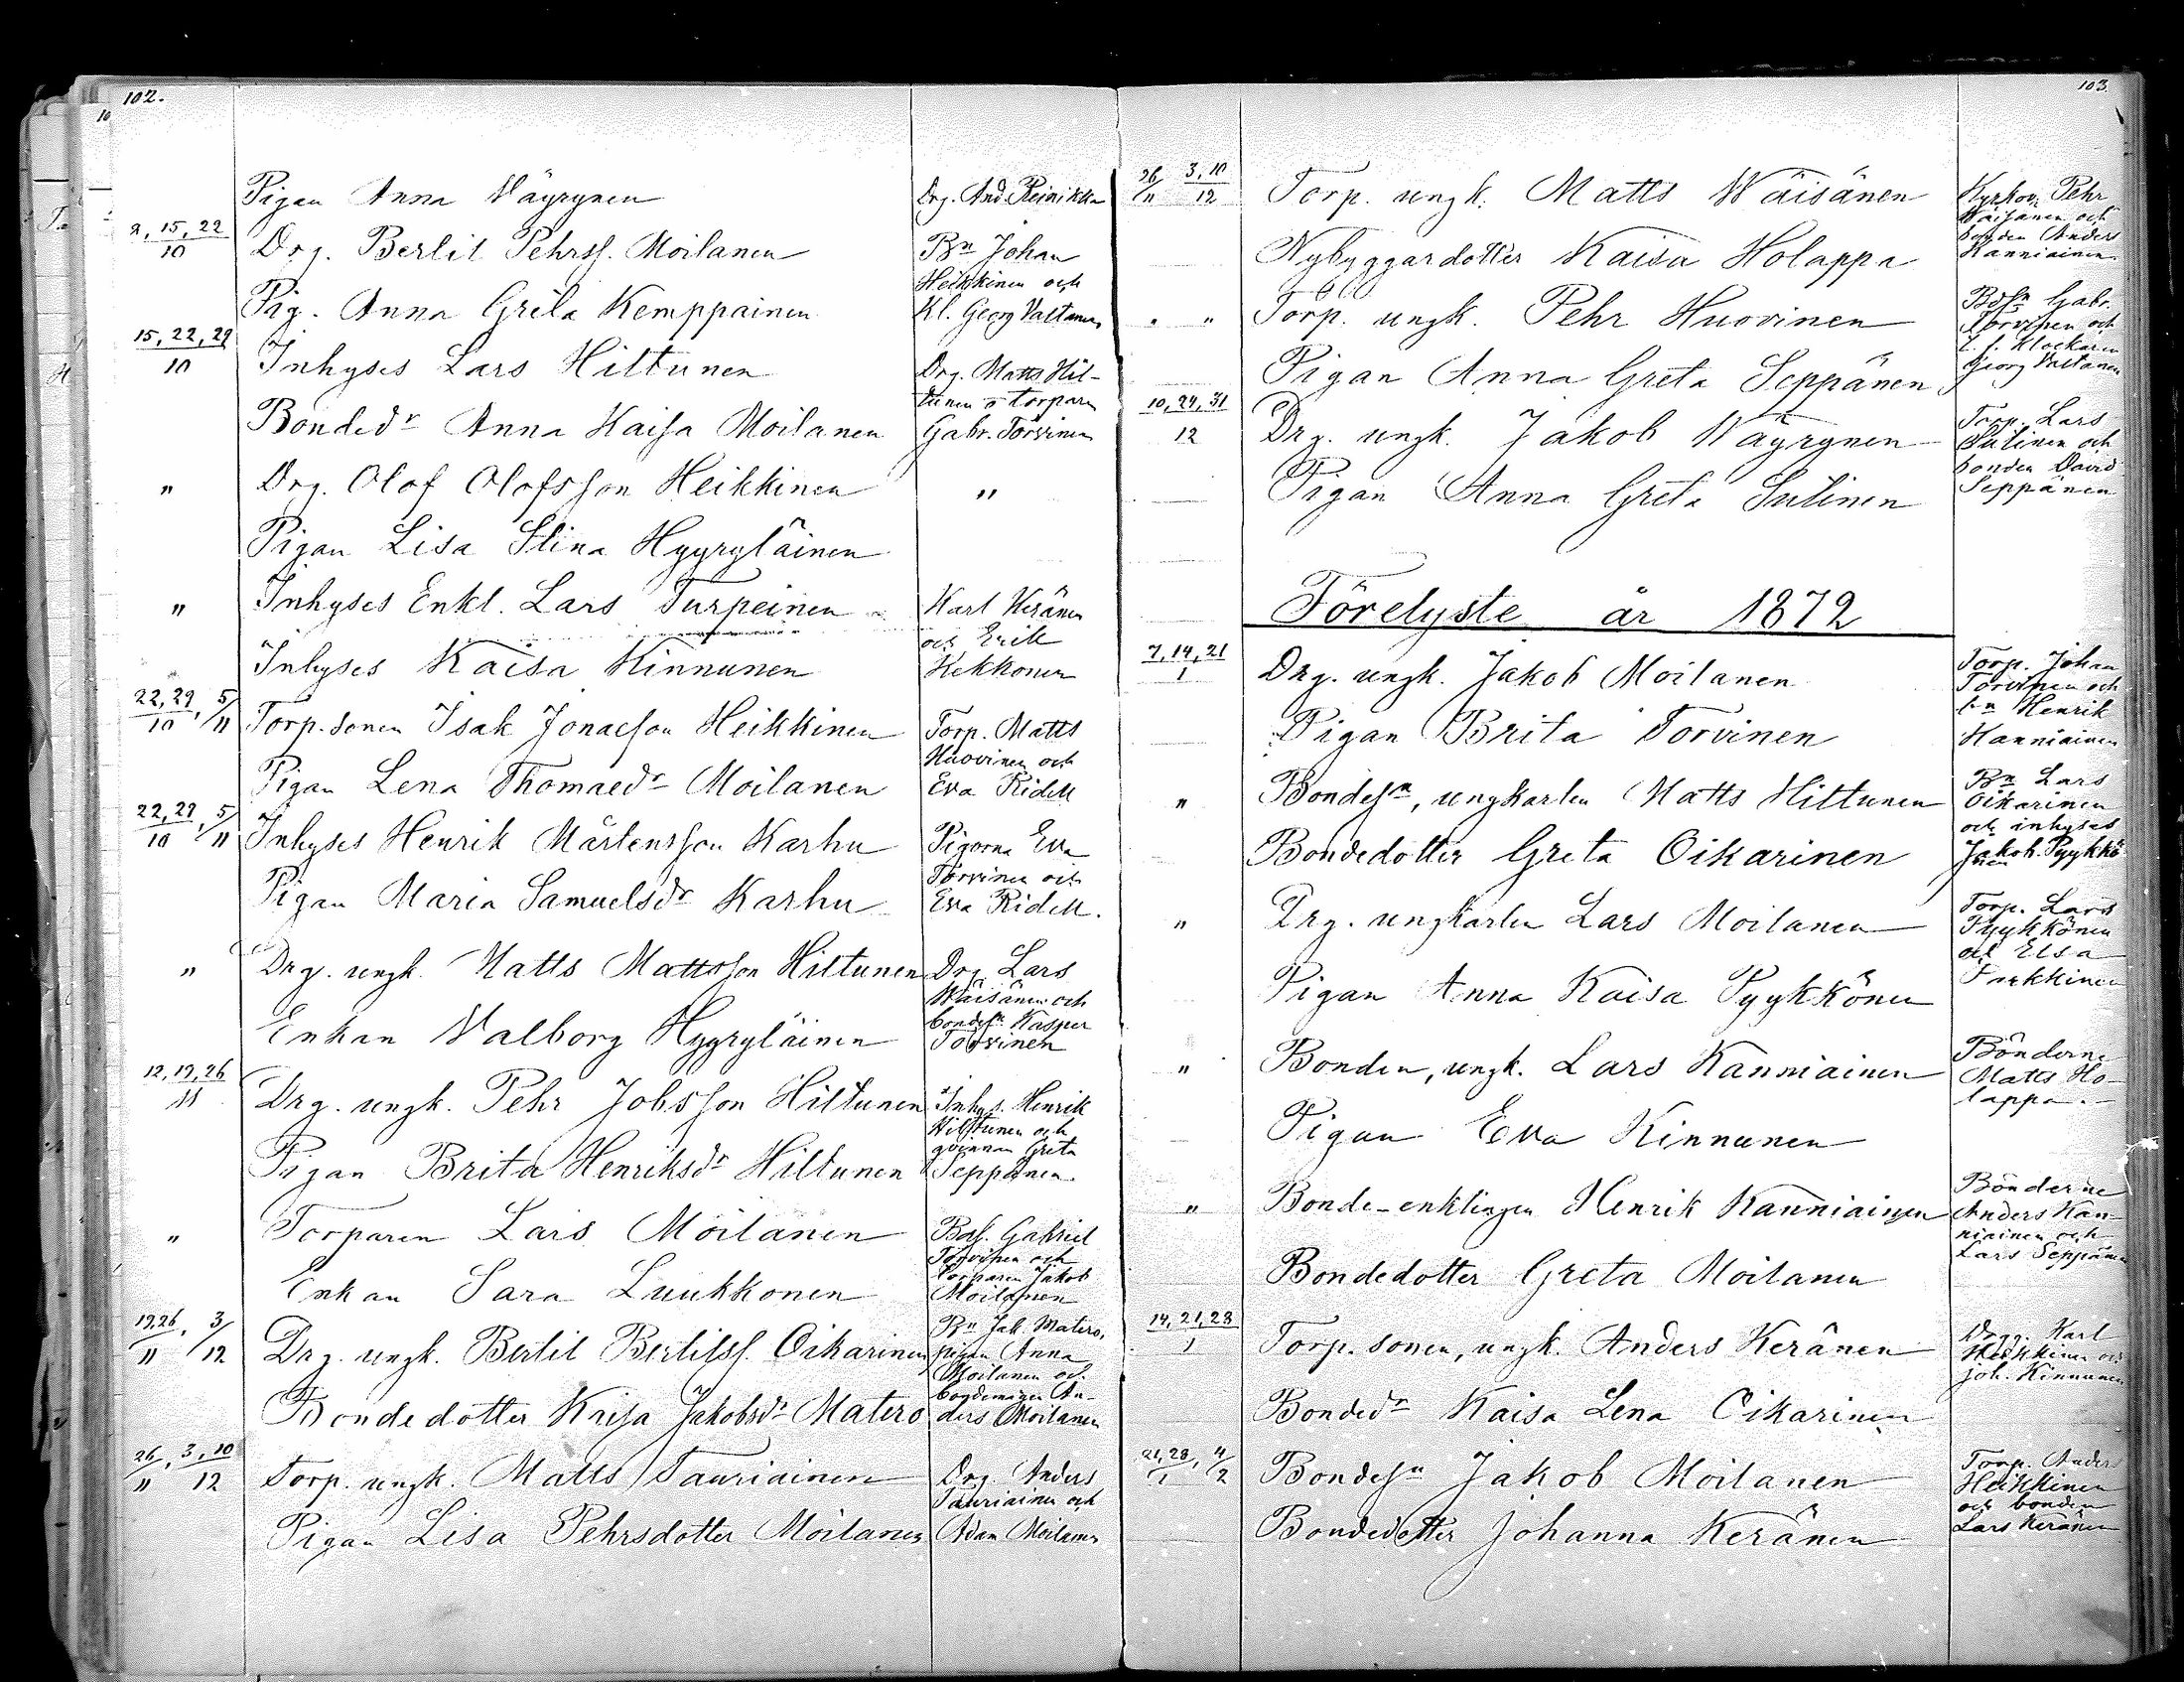 102.
Pigan Anna Wäyrynen
Drg. And. Reinikka
2, 15, 22
10
Drg. Bertil Pehrss. Moilanen
Bn Johan
Heikkinen och
Pig. Anna Greta Kemppainen
Kl. Georg Valtanen
15, 22, 29
10
Inhyses Lars Hiltunen
Drg. Matts Hil-
tunen o torparen
Bondedr Anna Kaisa Moilanen
Gabr. Törvinen
"
Drg. Olof Olofsson Heikkinen
"
Pigan Lisa Stina Hyyryläinen
"
Inhyses Enkl. Lars Turpeinen
Karl Keränen
och Erik
Inhyses Kaisa Kinnunen
Kekkonen
22, 29, 5
10 11
Torp. sonen Isak Jonaesson Heikkinen
Torp. Matts
Huovinen och
Pigan Lena Thomaedr Moilanen
Eva Ridell
22, 29, 5
10 11
Inhyses Henrik Mårtensson Karhu
Pigorna Eva
Törvinen och
Pigan Maria Samuelsdr Karhu
Eva Ridell.
"
Drg. ungk. Matts Mattsson Hiltunen
Drg. Lars
Wäisänen och
bondesn Kasper
Enkan Walborg Hyyryläinen
Törvinen
12, 19, 26
11
Drg. ungk. Pehr Jobsson Hiltunen
Inhys. Henrik
Hiltunen och
qvinnan Greta
Pigan Brita Henriksdr Hiltunen
Seppänen.
"
Torparen Lars Moilanen
Bds. Gabriel
Törvinen och
torparen Jakob
Enkan Sara Luukkonen
Moilanen
19,26, 3
11 12
Drg. ungk. Bertil Bertilss. Oikarinen
Bn Jak. Matero,
pigan Anna
Moilanen och
Bondedotter Kaisa Jakobsdr Matero
ders Moilanen
26, 3, 10
11 12
Torp. ungk. Matts Tauriainen
Drg. Anders
Tauriainen och
Pigan Lisa Pehrsdotter Moilanen
Adam Moilanen
103.
26 3, 10
11 12
Torp. ungk. Matts Wäisänen
Kyrkov. Pehr
Wäisänen och
bonden Anders
Nybyggardotter Kaisa Holappa
Kanniainen
" "
Torp. ungk. Pehr Huovinen
Bdsn Gabr.
Törvinen och
t. f. klockaren
Pigan Anna Greta Seppänen
Georg Valtanen
10, 24, 31
12
Drg. ungk. Jakob Wäyrynen
Torp. Lars
Sutinen och
bonden David
Pigan Anna Greta Sutinen
Seppänen
Förelyste år 1872
7, 14, 21
1
Drg. ungk. Jakob Moilanen
Torp. Johan
Törvinen och
bn Henrik
Pigan Brita Törvinen
Kanniainen
"
Bondesn, ungkarlen Matts Hiltunen
Bn Lars
Oikarinen
och inhyses
Bondedotter Greta Oikarinen
Jakob Pyykkö-
nen
"
Drg. ungkarlen Lars Moilanen
Torp. Lars
Pyykkönen
och Elsa
Pigan Anna Kaisa Pyykkönen
Parkkinen
"
Bonden, ungk. Lars Kanniainen
Bönderne
Matts Ho-
lappa.
Pigan Eva Kinnunen
"
Bonde-enklingen Henrik Kanniainen
Bönderne
Anders Kan-
niainen och
Lars Seppänen
Bondedotter Greta Moilanen
14, 21, 28
1
Torp. sonen, ungk. Anders Keränen
Drgg. Karl
Heikkinen och
Joh. Kinnunen
Bondedr Kaisa Lena Oikarinen
21, 28, 4
1 2
Bondesn Jakob Moilanen
Torp. Anders
Heikkinen
och bonden
Bondedotter Johanna Keränen
Lars Keränen